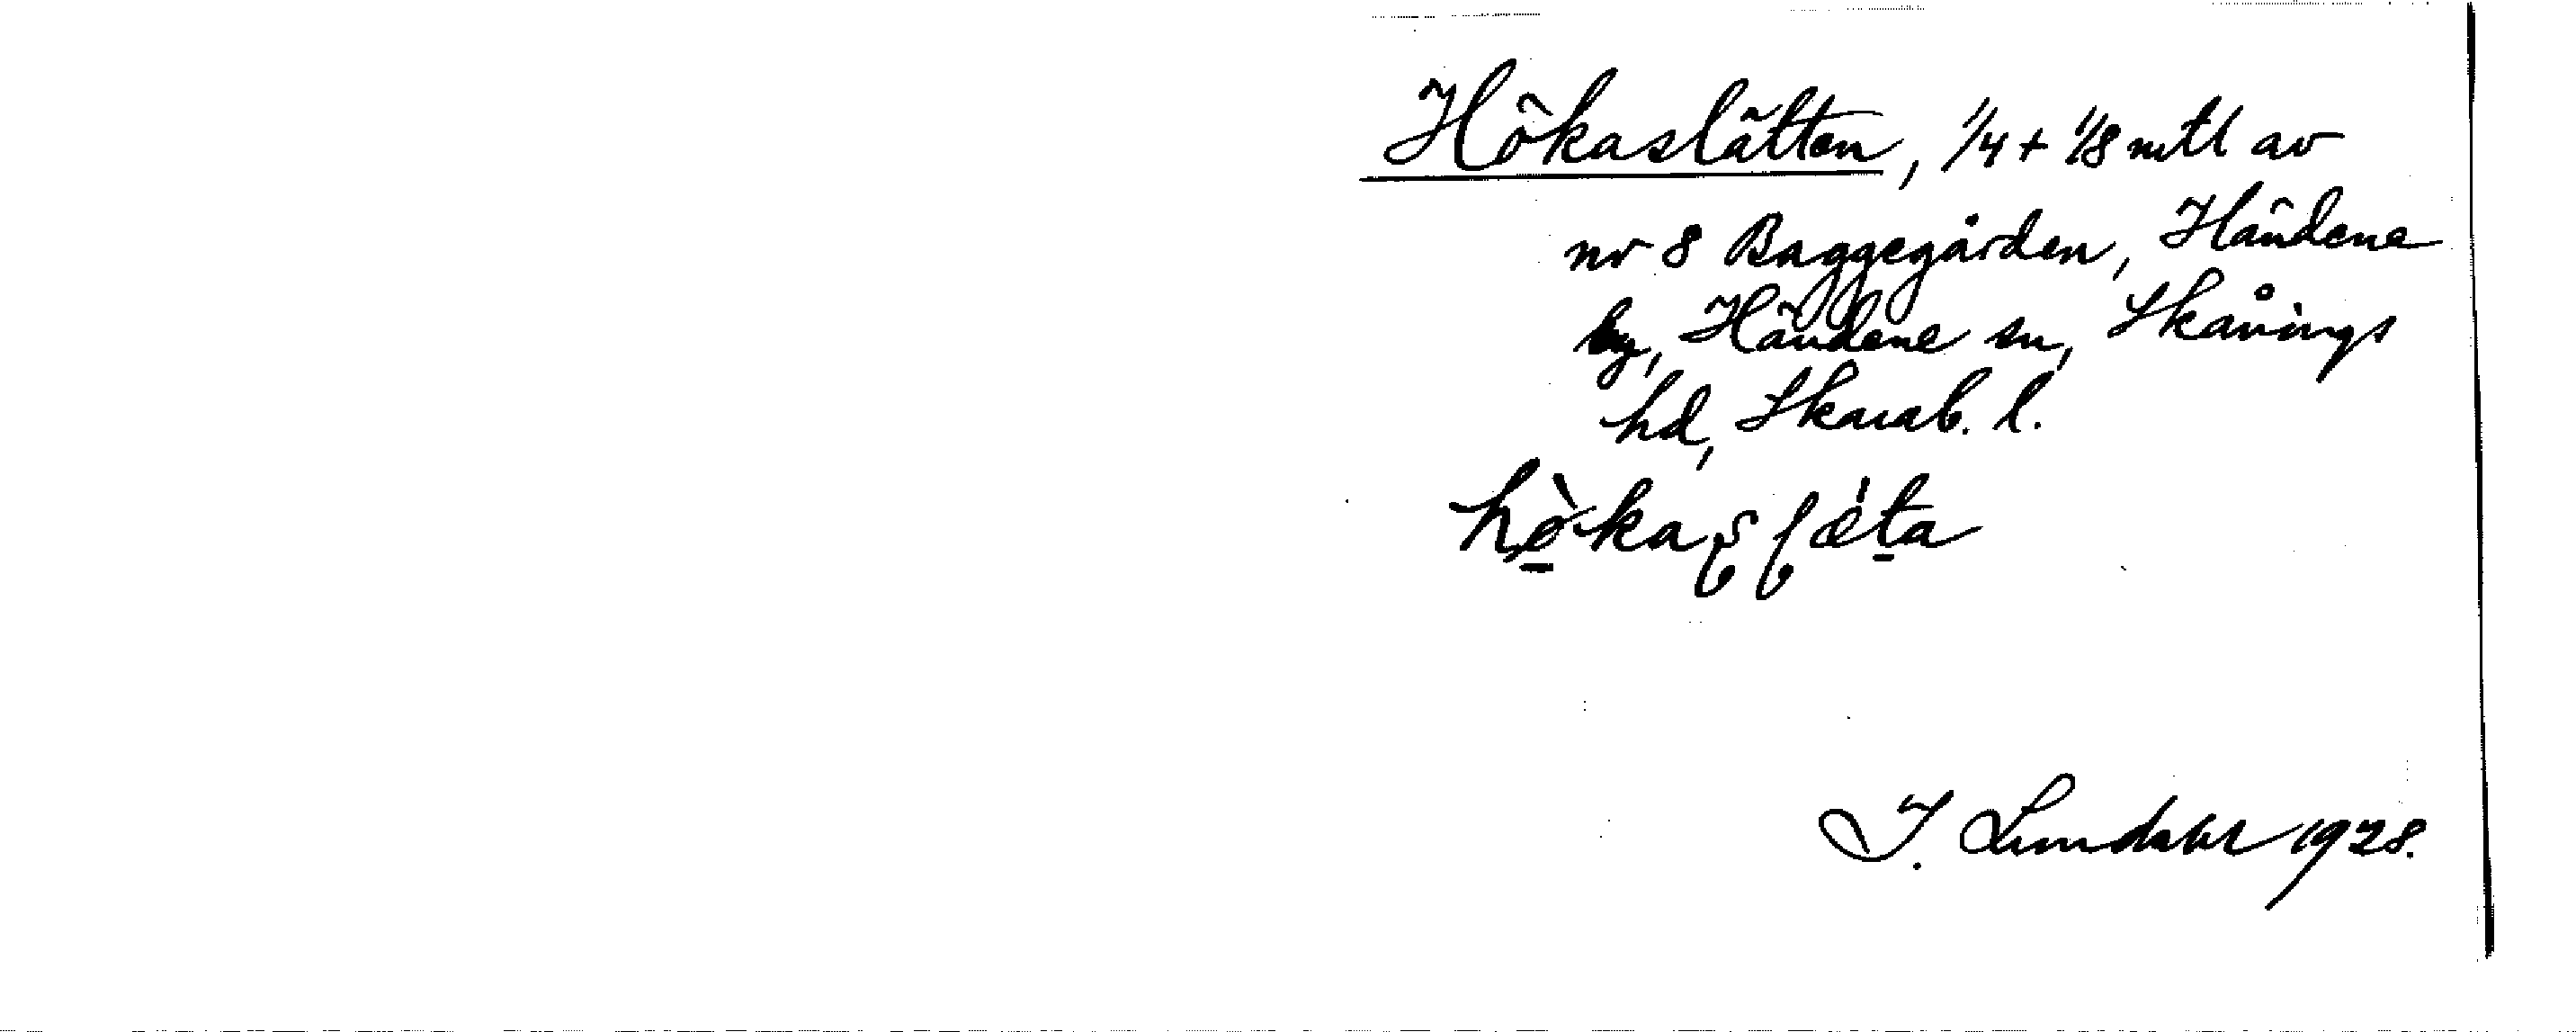 Hökaslätten, 1/4 + 1/8 mtl av
nr 8 Baggegården, Händene
by, Händene sn, Skånings
hd, Skarab. l.
I. Lundahl 1928.